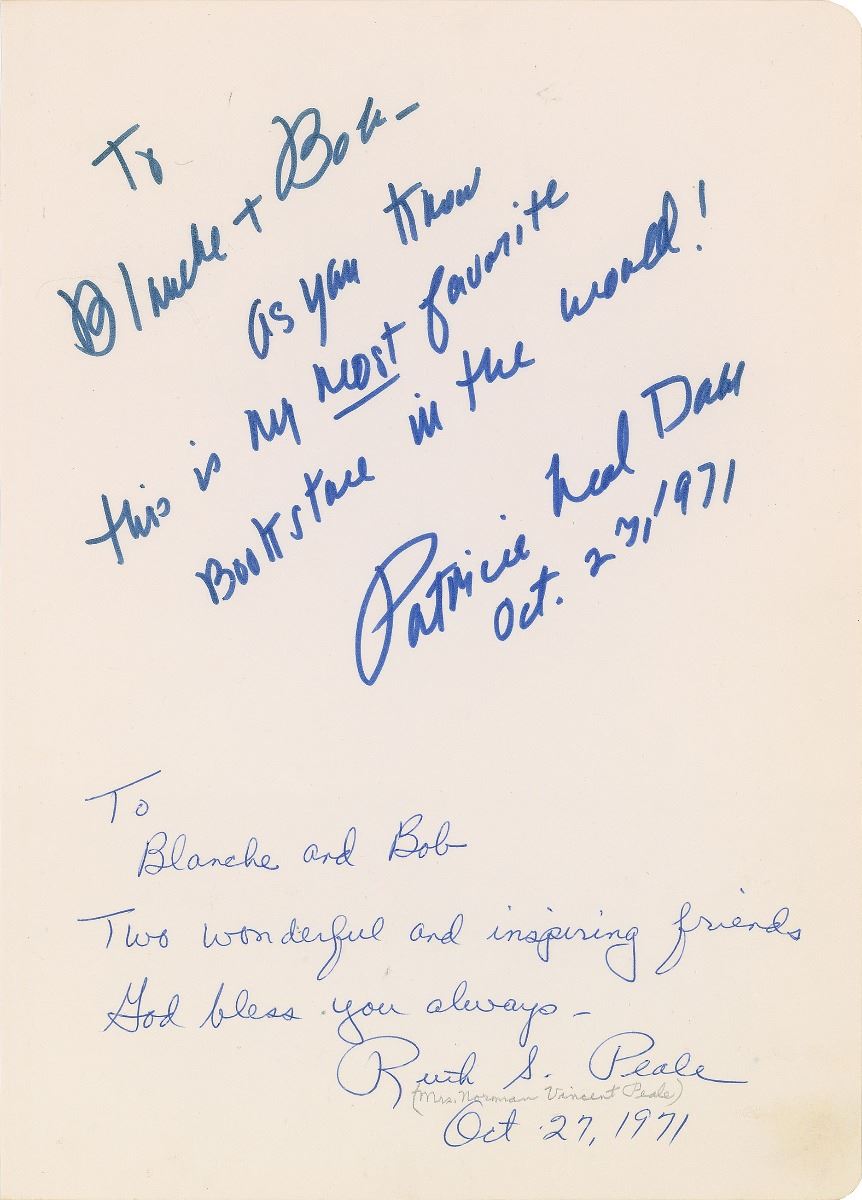 To
Blanche + Bob -
as you know
this is my most favorite
Bookstore in the world!
Patricia Neal Dahl
Oct. 27, 1971
To
Blanche and Bob
Two wonderful and inspiring friends
God bless you always -
Ruth S. Peale
(Mrs. Norman Vincent Peale)
Oct 27, 1971